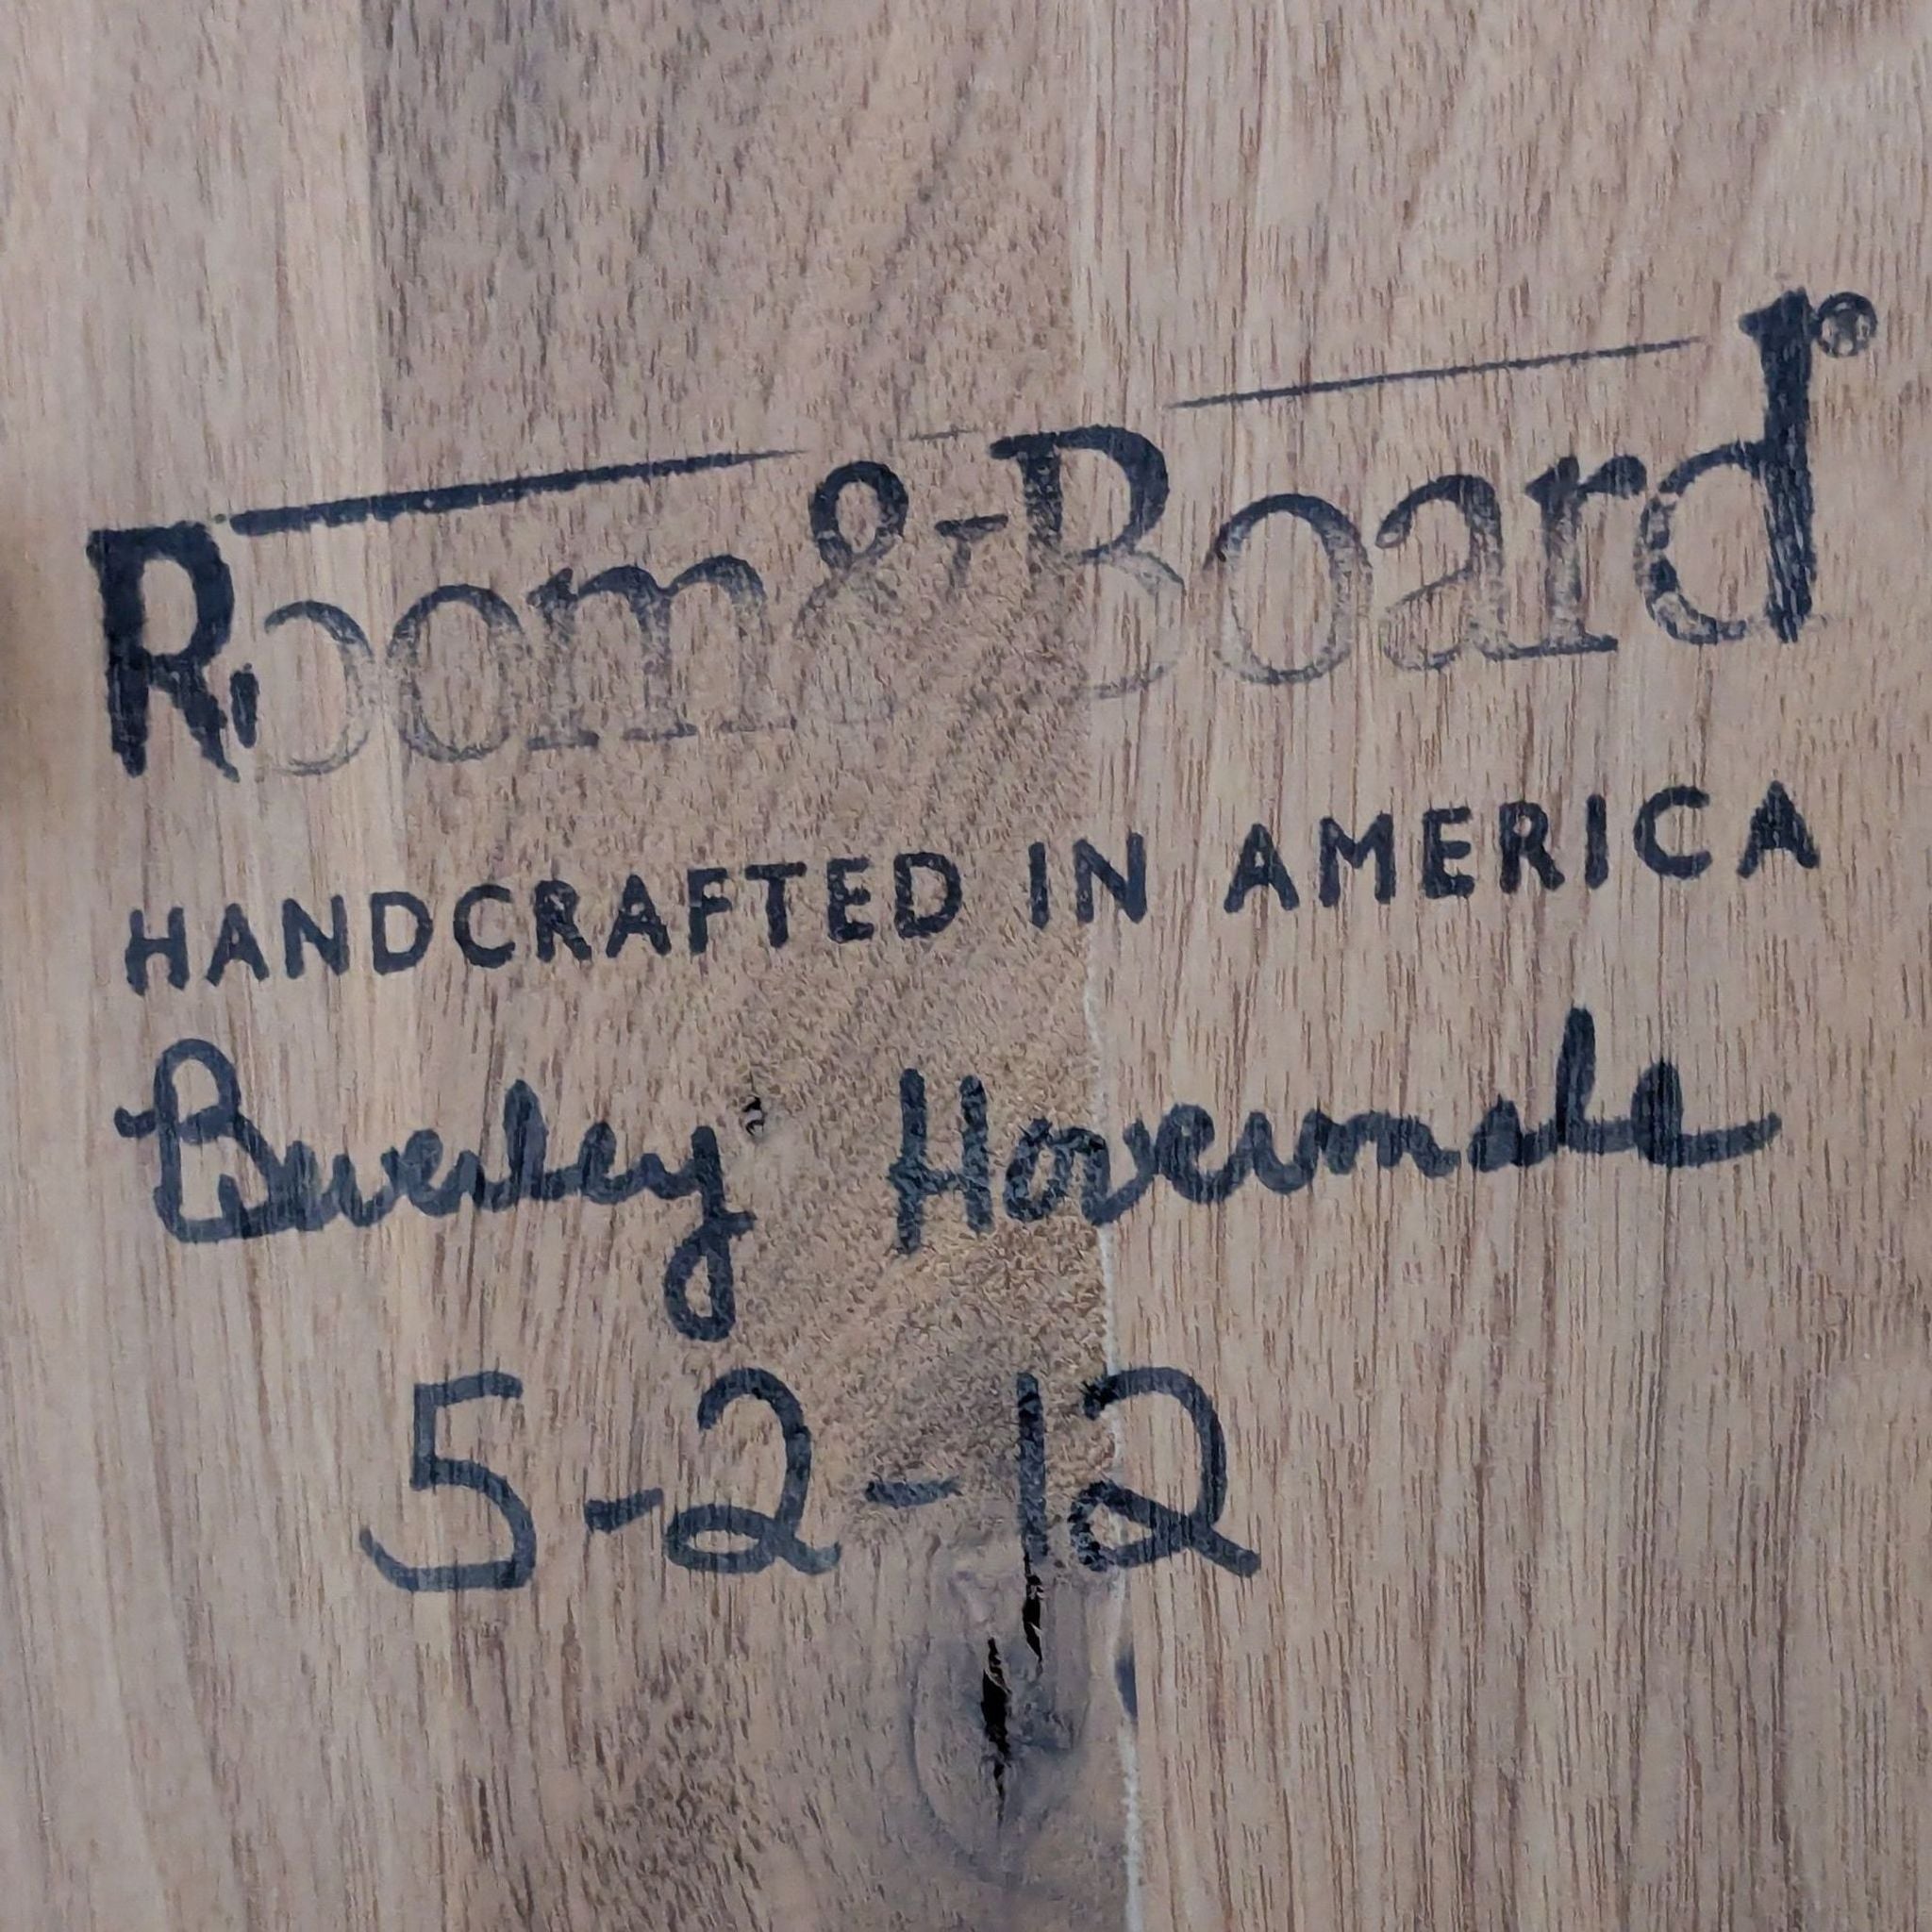 Room & Board®
HANDCRAFTED IN AMERICA
Beverley Hovermale
5-2-12